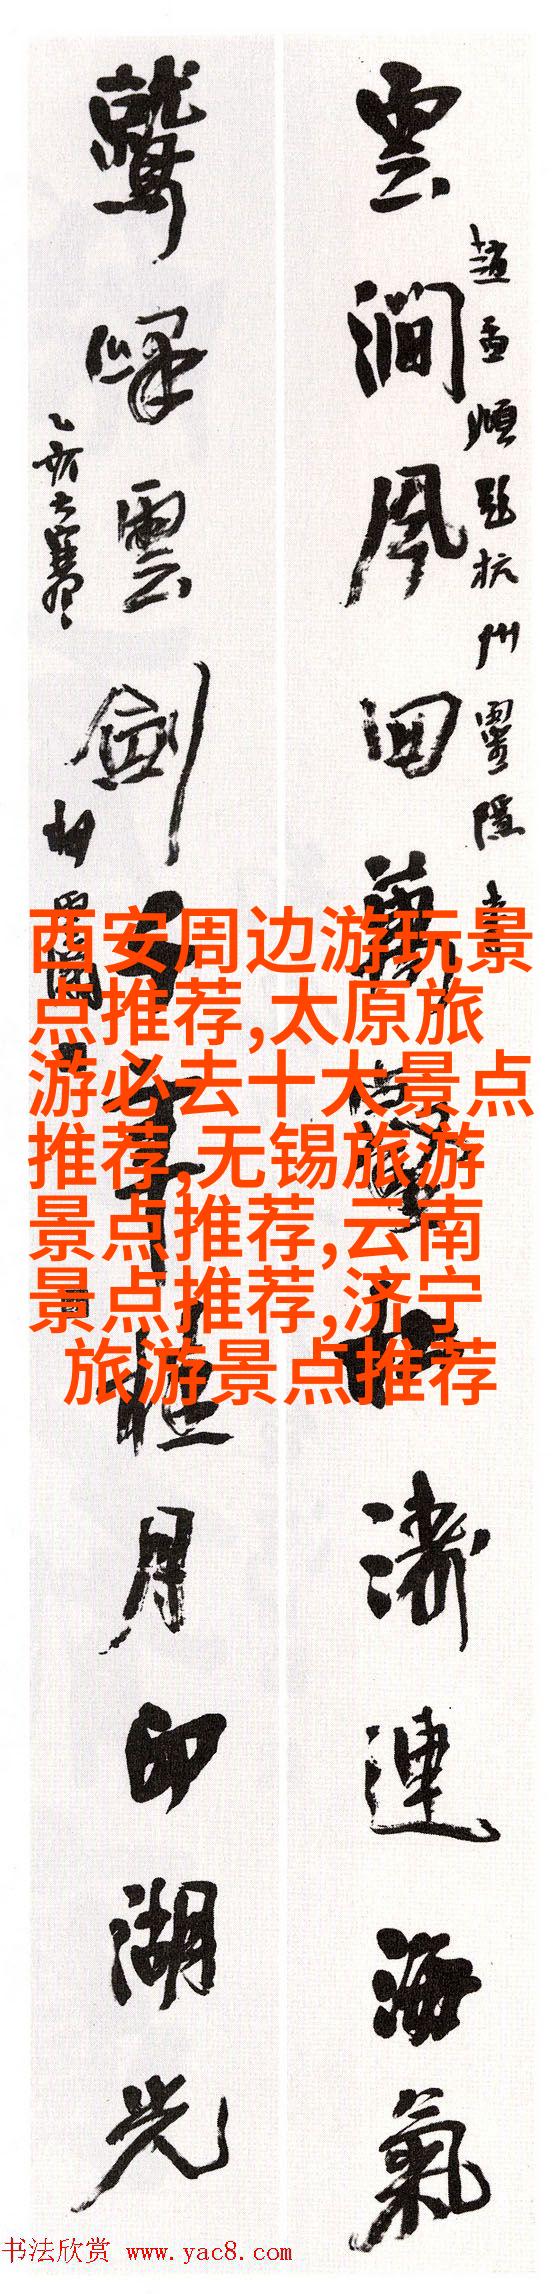 趙孟頫題杭州靈隱
雲澗風回萬壑濤連海氣
鷲峰雲劍千年桂月印湖光
乙亥大寒
西安周边游玩景
点推荐,太原旅
游必去十大景点
推荐,无锡旅游
景点推荐,云南
景点推荐,济宁
旅游景点推荐
书法欣赏 www.yac8.com